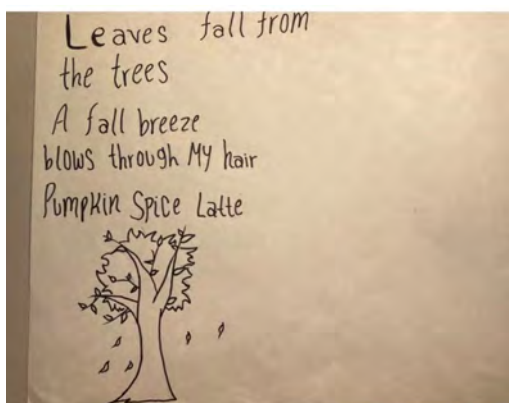 Leaves fall from
the trees
A fall breeze
blows through My hair
Pumpkin Spice Latte